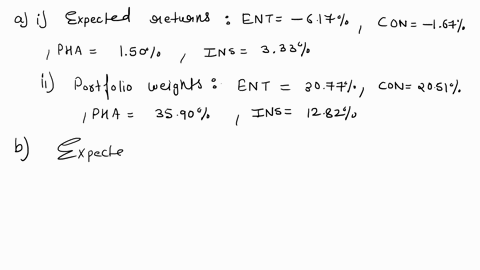 a) i) Expected returns : ENT = -6.17%, CON = -1.67%
, PHA = 1.50%, INS = 3.33%
ii) Portfolio weights : ENT = 30.77%, CON= 20.51%
, PHA = 35.90%, INS= 12.82%
b) Expecte